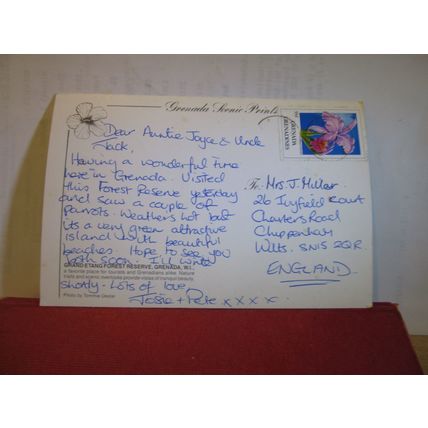 Grenada Scenic Prints
Dear Auntie Joyce & Uncle
Jack,
Having a wonderful time
here in Grenada. Visited
this Forest Reserve yesterday
and saw a couple of
Parrots. Weather's hot but
its a very green attractive
island with beautiful
beaches. Hope to see you
both soon. I'll write
GRAND ETANG FOREST RESERVE, GRENADA, W.I.
a favorite place for tourists and Grenadians alike. Nature
trails and scenic overlooks provide vistas of tranquil beauty.
Photo by Tommie
shortly - Lots of love,
Josie + Pete x x x x
GRENADA
GRENADINES
To: Mrs. J. Miller
26 Ivyfield Court
Charters Road
Chippenham
Wilts. SN15 2QR.
ENGLAND.